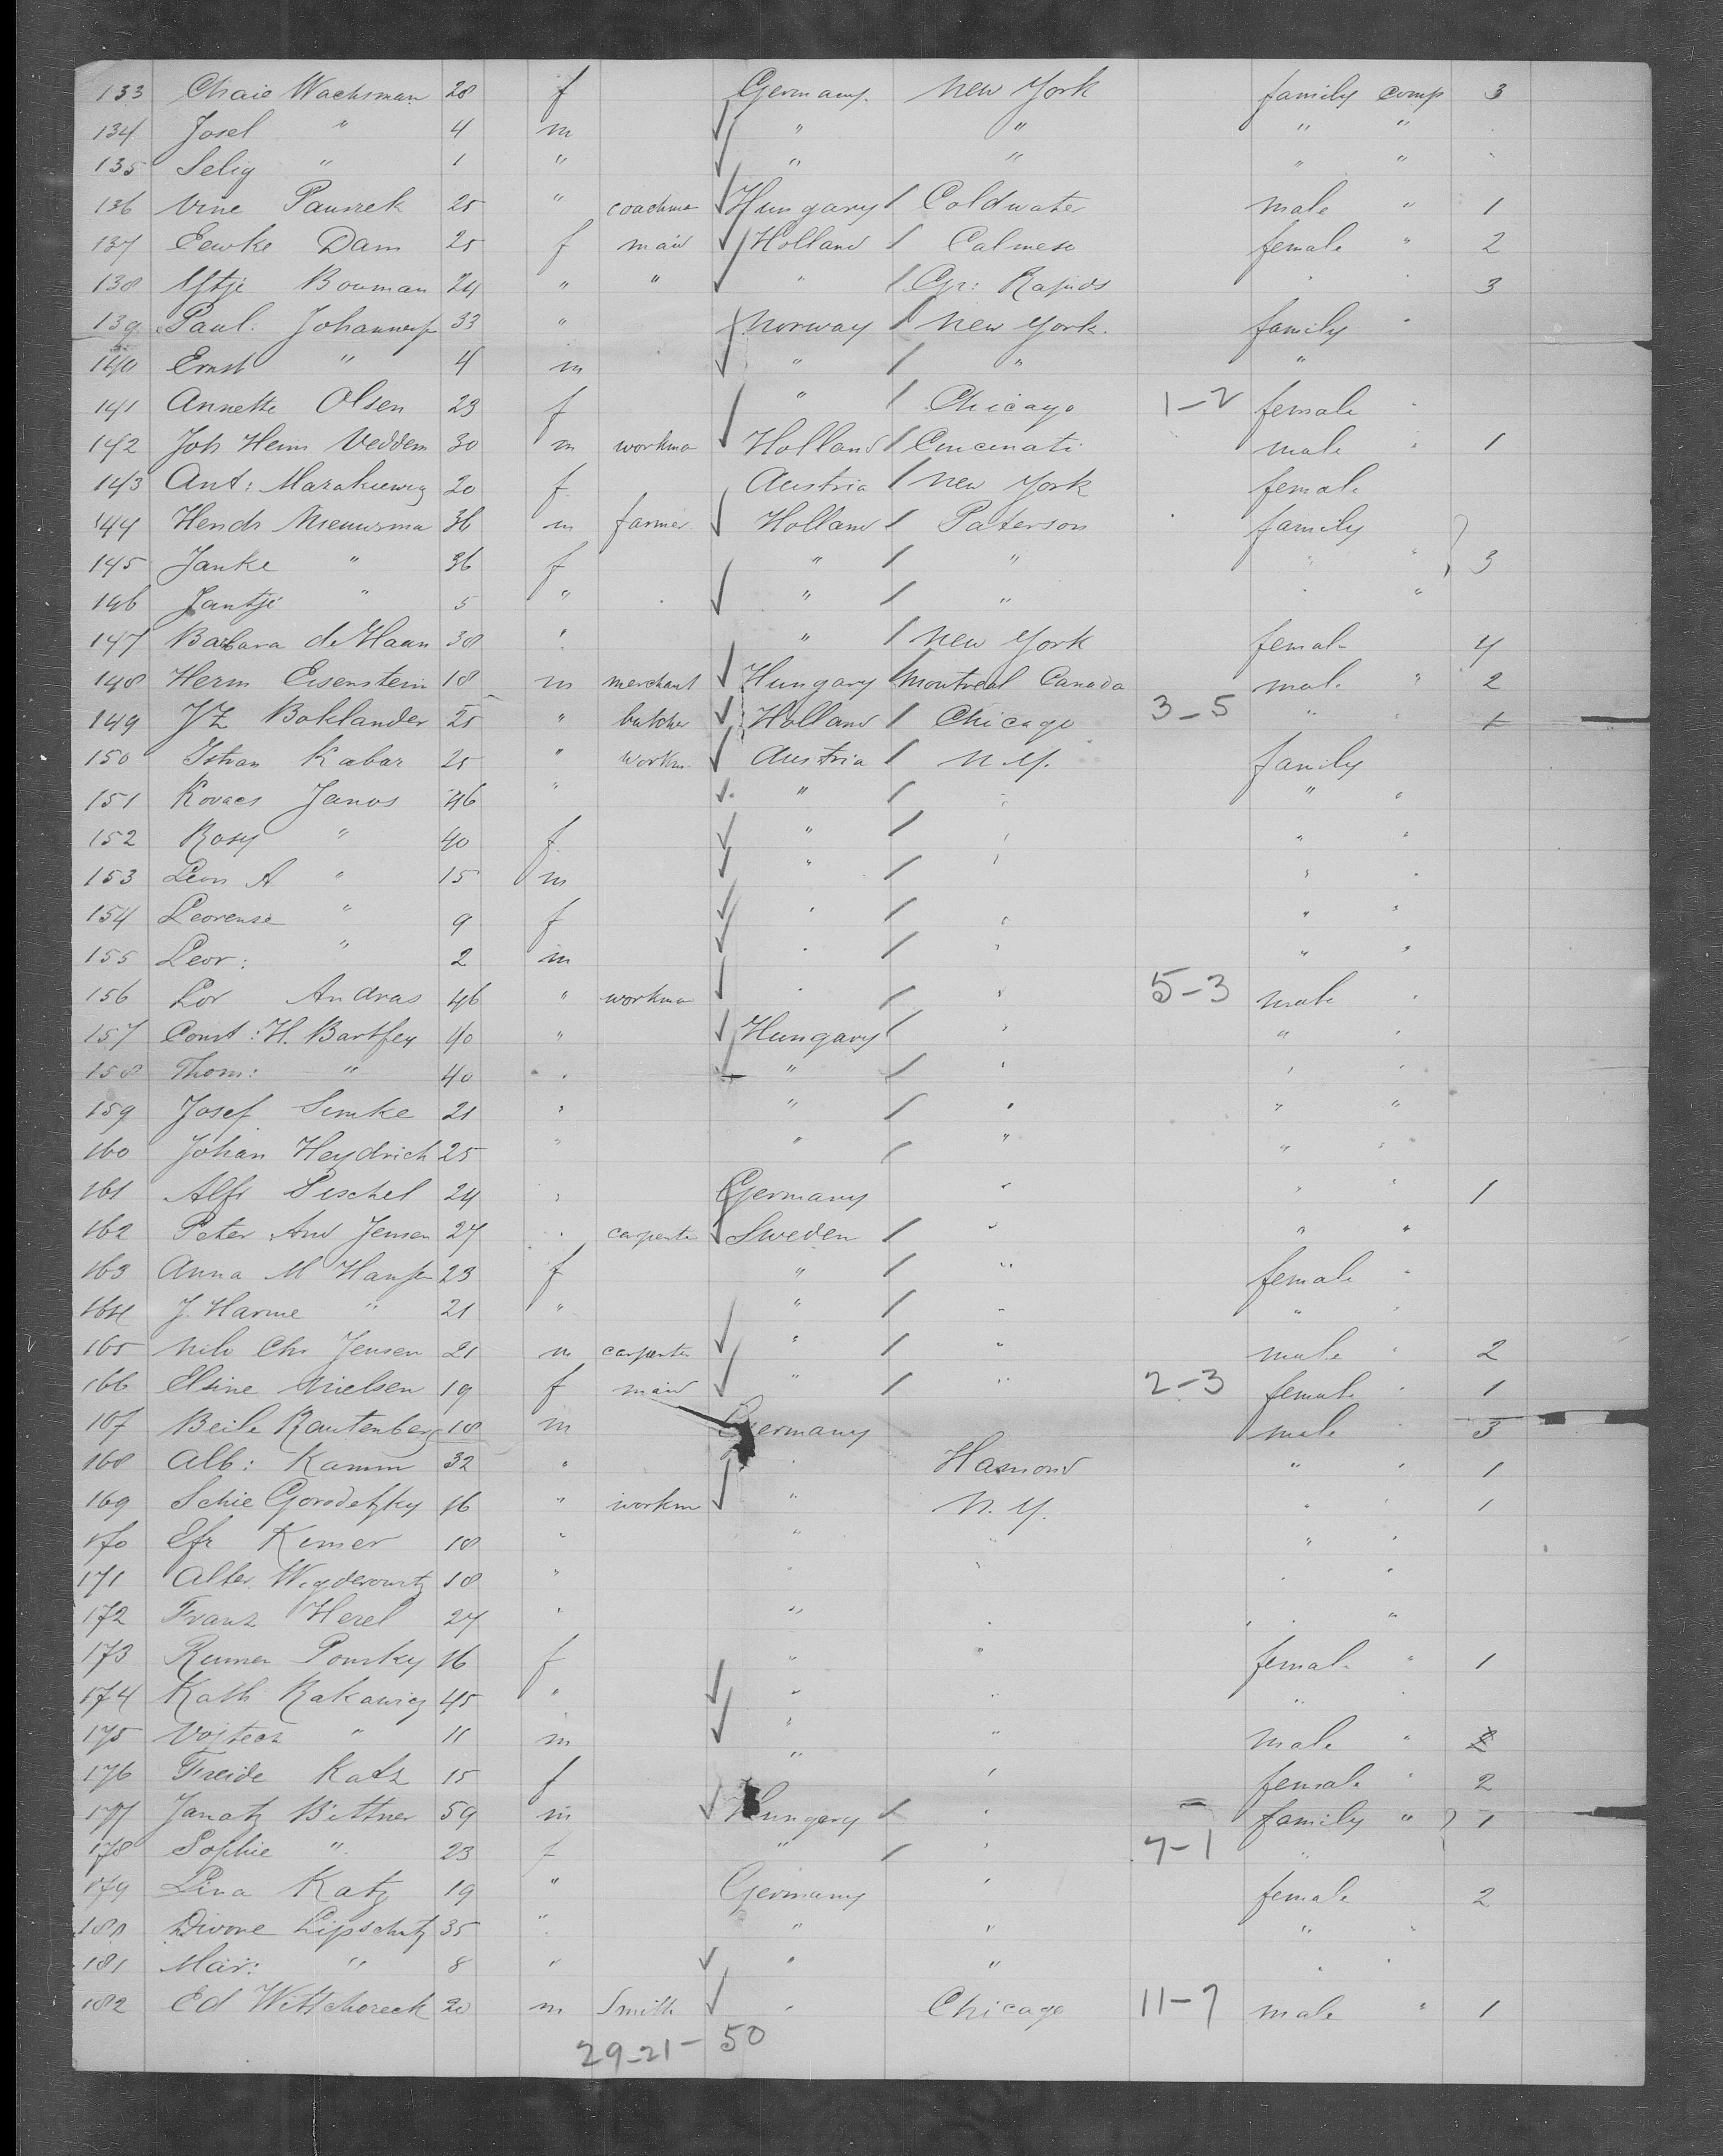 133 Chaie Wachsman 28 f Germany New York family comp 3
134 Josel " 4 m " " " "
135 Selig " 1 " " " " "
136 Vine 25 " coachma Hungary Coldwater male " 1
137 Eewke Dam 25 f maid Holland female " 2
138 Bouman 24 " " " Gr: Rapids " " 3
139 Paul. 33 " Norway New York. family "
140 Ernst " 4 m " " "
141 Annette Olsen 23 f " Chicago 1-2 female "
142 Joh Herm Veddem 30 m workma Holland Cincinati male " 1
143 Ant: 20 f Austria New York female
144 Hendr Nieuwsma 36 m farmer Holland Paterson family
145 Janke " 36 f " " " " 3
146 Jantje " 5 " " " " "
147 Barbara de Haan 38 " " New York female 4
148 Herm Eisenstein 18 m merchant Hungary Montreal Canada male " 2
149 JZ Boklander 25 " butcher Holland Chicago 3-5 " " 1
150 Istvan Kabar 25 " workm Austria N.Y. family
151 Kovacs Janos 46 " " " " "
152 Rosy " 40 f " " " "
153 Leon A " 15 m " " " "
154 Leorense " 9 f " " " "
155 Leor: " 2 m " " " "
156 Lor Andras 46 " workma " " 5-3 male "
157 Const: H. Bartfey 40 " Hungary " " "
158 Thom: " 40 " " " " "
159 Josef Simke 21 " " " " "
160 Johan Heydrich 25 " " " " "
161 Alfr Pischel 24 " Germany " " " 1
162 Peter And Jensen 27 " carpenter Sweden " " "
163 Anna M Hansen 23 f " " female "
164 J. Harme " 21 " " " " "
165 Nils Chr Jensen 21 m carpenter " " male " 2
166 Elsine Nielsen 19 f maid " " 2-3 female " 1
167 Beile Rautenberg 18 m Germany male " 3
168 Alb: Kamm 32 " " Hamond " " 1
169 Schie Gorodetzky 16 " workm " N.Y. " " 1
170 Efr Kemer 18 " " " " "
171 Alter Wigderowitz 18 " " " " "
172 Franz Hezel 27 " " " " "
173 16 f " " female " 1
174 Kath Rakawicz 45 " " " " "
175 Vojtech " 11 m " " male " 2
176 Freide Katz 15 f " " female " 2
177 Janatz Bittner 59 m Hungary " family " 1
178 Sophie " 23 f " " 7-1 "
179 Lina Katz 19 " Germany " female 2
180 Divore Lipschitz 35 " " " " "
181 Mar: " 8 " " " " "
182 Ed Wittchoreck 20 m Smith " Chicago 11-7 male " 1
29-21- 50